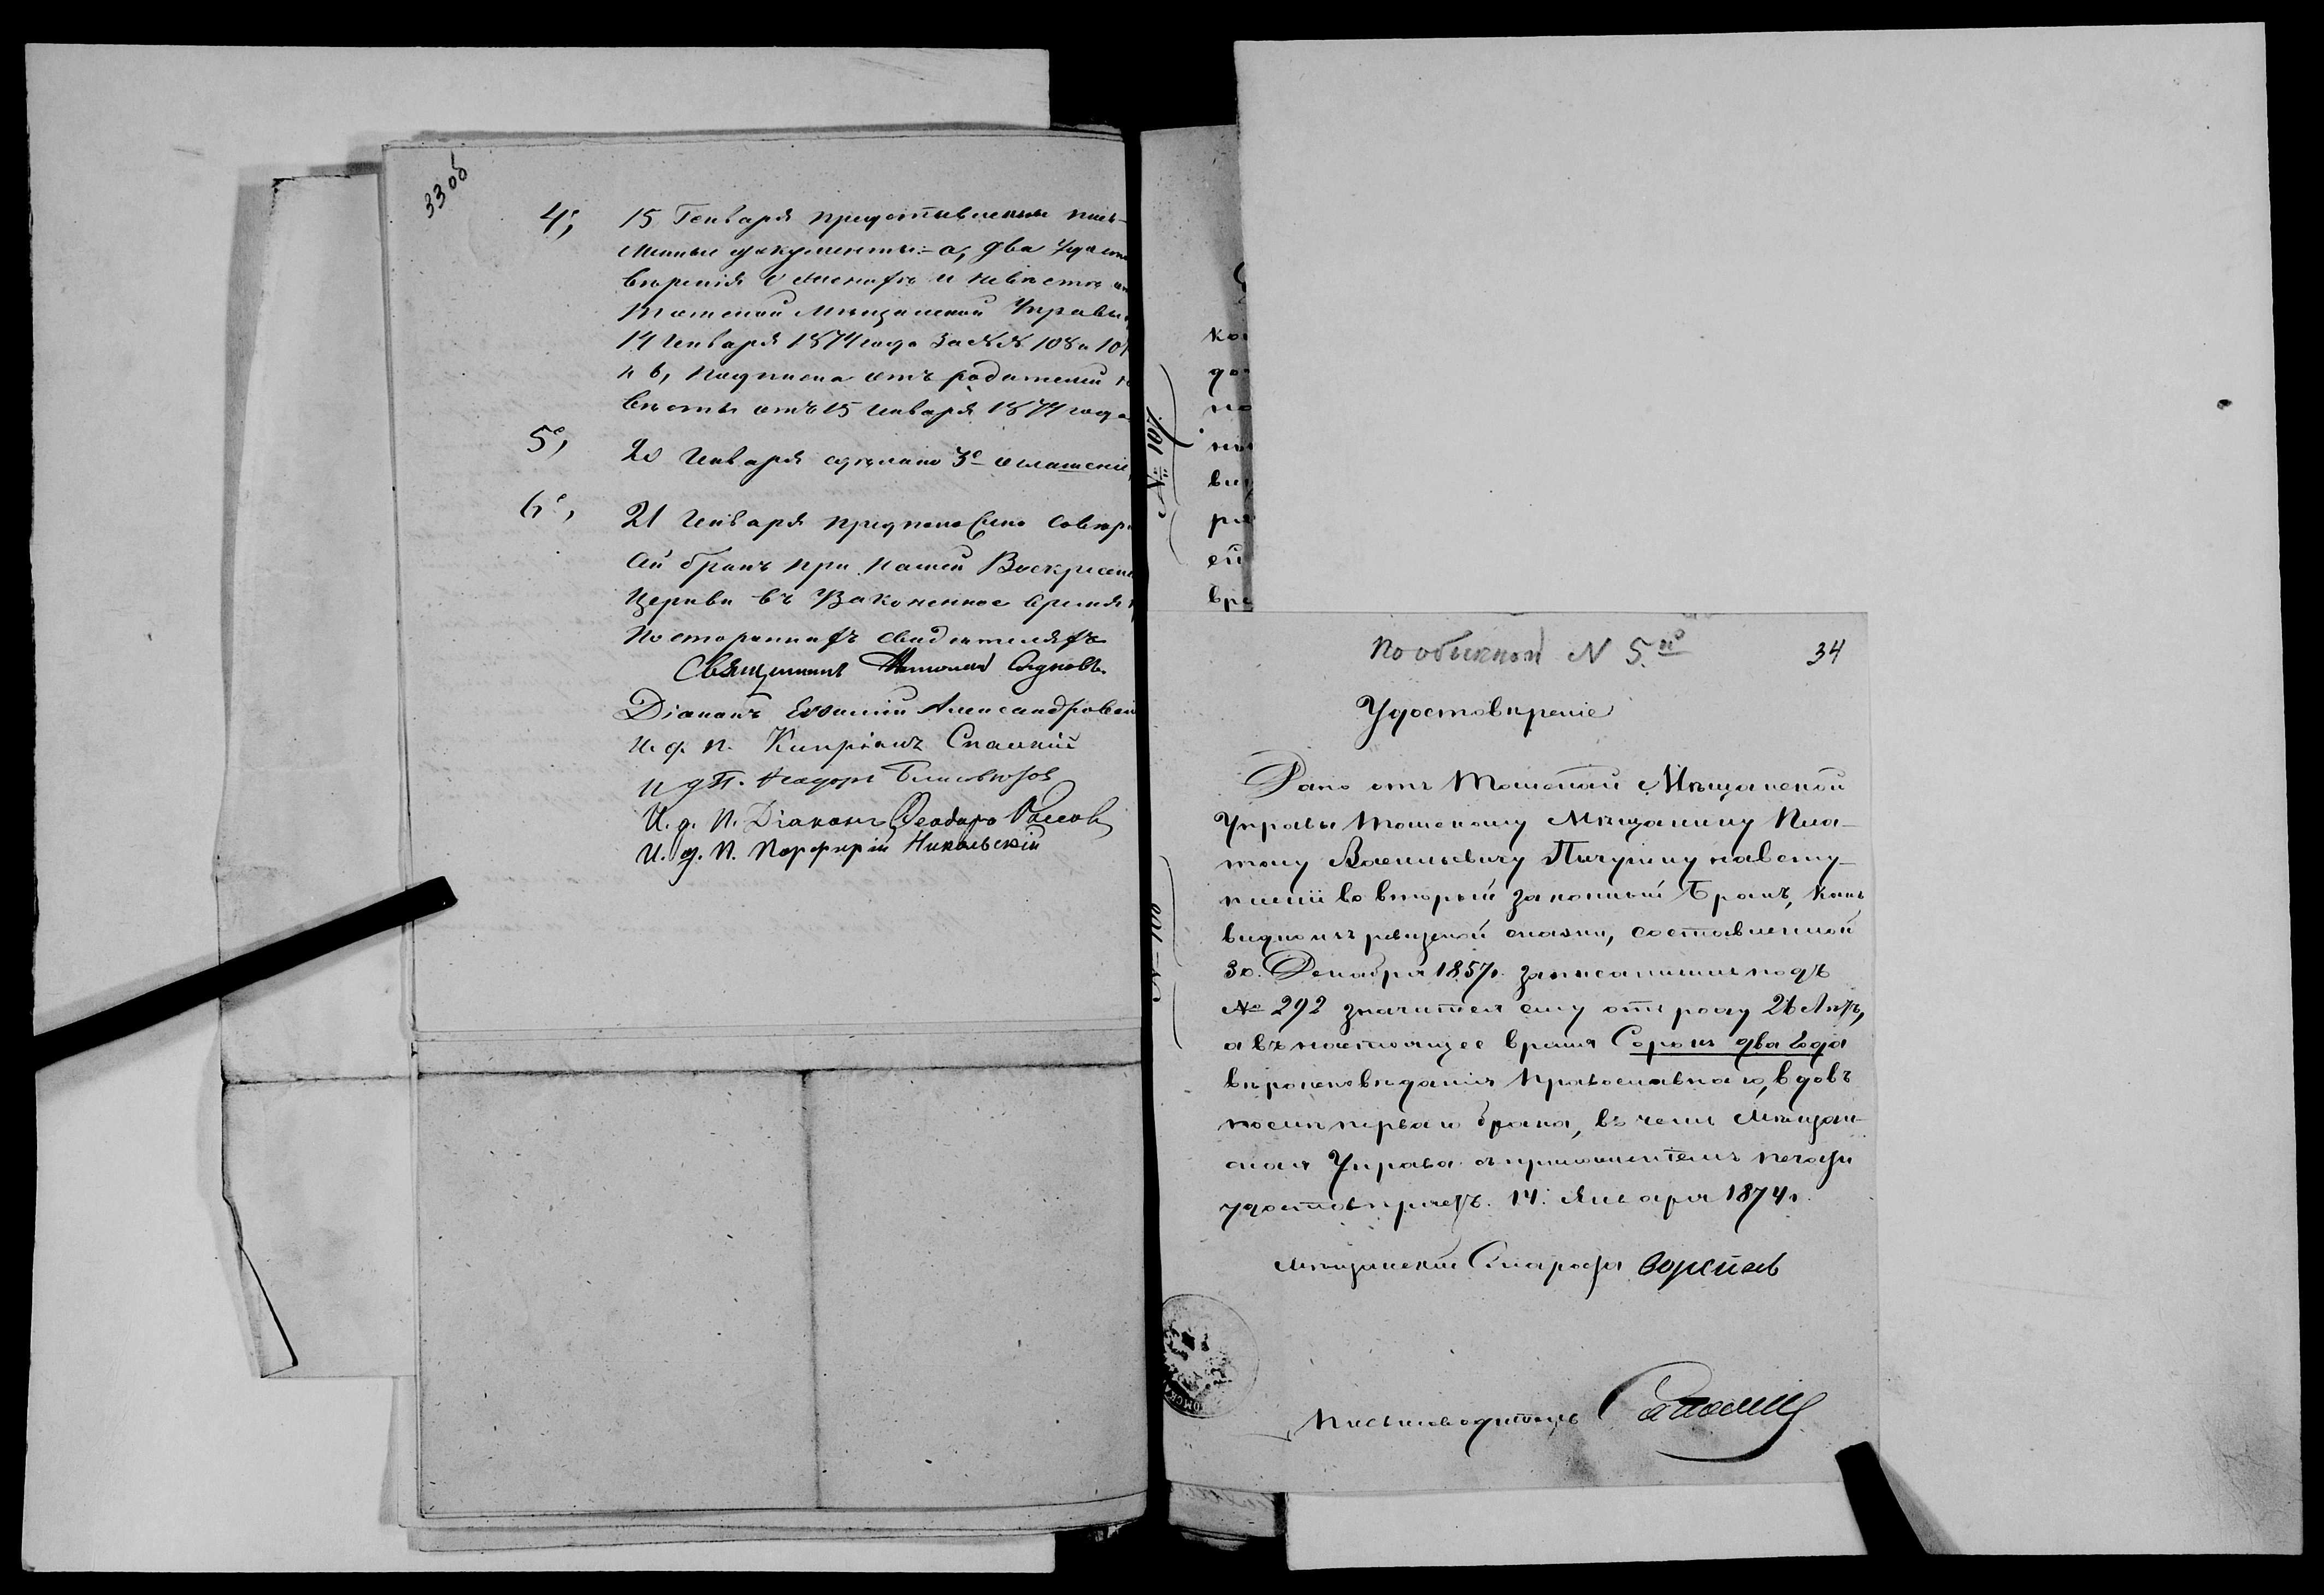 33 об
4е, 15 Генваря представлены пись-
менные документы:- а, два удосто
вѣренія о женихѣ и невѣстѣ
Томской Мѣщанской Управы
14 Генваря 1874 года за №№ 108 и 10
и б, подписка отъ родителей
вѣсты отъ 15 Генваря 1874 года
5е, 20 Генваря сдѣлано 3е оглашеніе
6е, 21 Генваря предположено соверш
ай бракъ при нашей Воскресенс
Церкви въ узаконенное время
постороннихъ свидѣтеляхъ
Священникъ
Діаконъ Евѳимій Александровскій
И. д. п. Кипріанъ Спасскій
и д п. Ѳеодоръ
И. д. П. Діаконъ Ѳеодоръ
И. д. П. Порфирій Никольскій
№ 107
ко
до
по
ви
ря
ей
вре
№ 108
По обыкной N 5.й
34
Удостовѣреніе
Дано отъ Томской Мѣщанской
Управы Томскому Мѣщанину Пла-
тону Васильевичу Пичугину на всту-
пленіе во вторый законный Бракъ, какъ
видно изъ ревизской сказки, составленной
30. Декабря 1857г. записаннымъ подъ
№ 292 значится ему отъ роду 26 лѣтъ,
а въ настоящее время Сорокъ два Года
вѣроисповѣданія Православнаго, вдовъ
послѣ перваго брака, въ чемъ Мѣщан-
ская Управа съ приложеніемъ печати
удостовѣряетъ. 14. Января 1874г.
Мѣщанскій Староста
ОМСКА
Письмоводитель